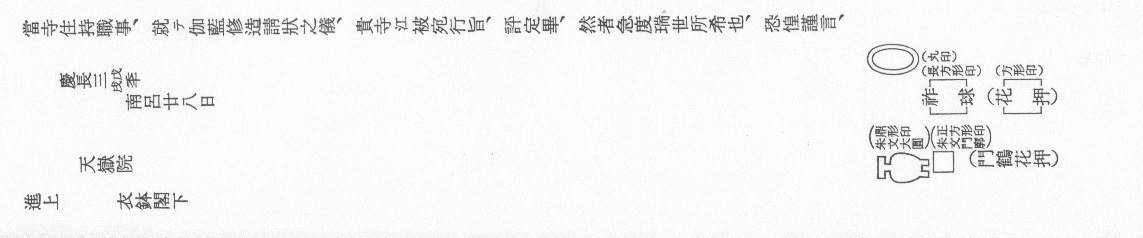 當寺住持職事、就テ伽藍修造請狀之儀、貴寺江被宛行旨、評定畢、然者急度瑞世所希也、恐惶謹言、
慶長三戊戌季
南呂廿八日
（丸印）
（長方形印）（方形印）
祚球（花押）
（朱文大圓鼎形印）（朱文門廓正方形印）
門鶴（花押）
天嶽院
進上　衣鉢閣下